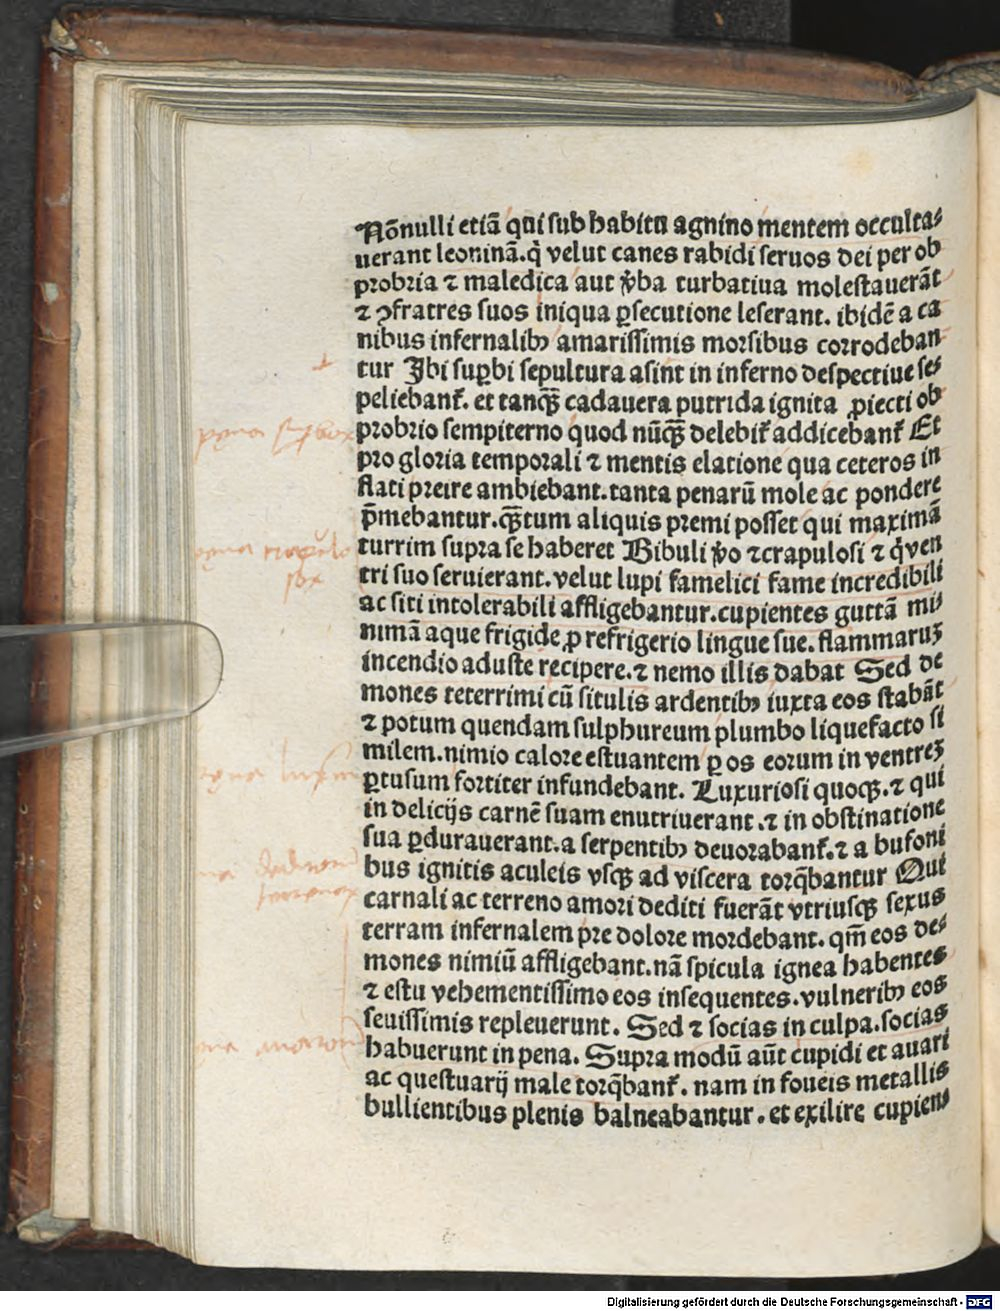 Nōnulli etiā qui sub habitu agnino mentem occulta⸗
uerant leoninā.q̇ velut canes rabidi seruos dei per ob
probria ⁊ maledica aut v̄ba turbatiua molestauerāt
⁊ ꝯfratres suos iniqua ꝑsecutione leserant. ibidē a ca
nibus infernalibꝰ amarissimis morsibus corrodeban
tur Ibi suꝑbi sepultura asini in inferno despectiue se⸗
peliebant᷑. et tanqꝫ cadauera putrida ignita ꝓiecti ob
probrio sempiterno quod nūqꝫ delebit᷑ addicebant᷑ Et
pro gloria temporali ⁊ mentis elatione qua ceteros in
flati preire ambiebant.tanta penarū mole ac pondere
p̄mebantur.qꝫtum aliquis premi posset qui maximā
turrim supra se haberet Bibuli v̄o ⁊crapulosi ⁊ q̇ ven
tri suo seruierant.velut lupi famelici fame incredibili
ac siti intolerabili affligebantur.cupientes guttā mi⸗
nimā aque frigide ꝓ refrigerio lingue sue. flammaruꝫ
incendio aduste recipere.⁊ nemo illis dabat Sed de
mones teterrimi cū situlis ardentibꝰ iuxta eos stabāt
⁊ potum quendam sulphureum plumbo liquefacto si
milem.nimio calore estuantem ꝑ os eorum in ventreꝫ
ꝑtusum fortiter infundebant. Luxuriosi quoqꝫ.⁊ qui
in delicijs carnē suam enutriuerant.⁊ in obstinatione
sua ꝑdurauerant.a serpentibꝰ deuorabant᷑.⁊ a bufoni
bus ignitis aculeis vsqꝫ ad viscera torq̄bantur Qui
carnali ac terreno amori dediti fuerāt vtriusqꝫ sexus
terram infernalem pre dolore mordebant. qm̄ eos de⸗
mones nimiū affligebant.nā spicula ignea habentes
⁊ estu vehementissimo eos insequentes.vulneribꝰ eos
seuissimis repleuerunt. Sed ⁊ socias in culpa.socias
habuerunt in pena. Supra modū aūt cupidi et auari
ac questuarij male torq̄bant᷑. nam in foueis metallis
bullientibus plenis balneabantur. et exilire cupiens
Digitalisierung gefördert durch die Deutsche Forschungsgemeinschaft - DFG